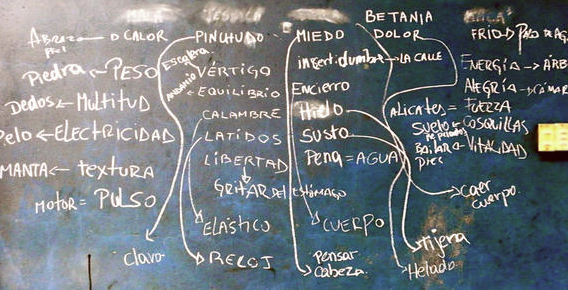 BETANIA
ABRAZO — D CALOR
piel
PIEDRA ← PESO
Dedos ← MULTITUD
Pelo ← ELECTRICIDAD
MANTA ← TEXTURA
MOTOR = PULSO
clavo
PINCHUDO
Escalera
VÉRTIGO
EQUILIBRIO
CALAMBRE
LATIDOS
LIBERTAD
GRITAR DEL ESTÓMAGO
ELÁSTICO
RELOJ
MIEDO
incertidumbre → LA CALLE
ENCIERRO
Hielo
SUSTO
Pena = AGUA
CUERPO
pensar
cabeza
DOLOR
ALICATES = FUERZA
SUELO ← COSQUILLAS
BAILAR ← VITALIDAD
pies
caer
cuerpo
tijera
Helado
FRIO →
ENERGÍA → ÁRB
ALEGRÍA →